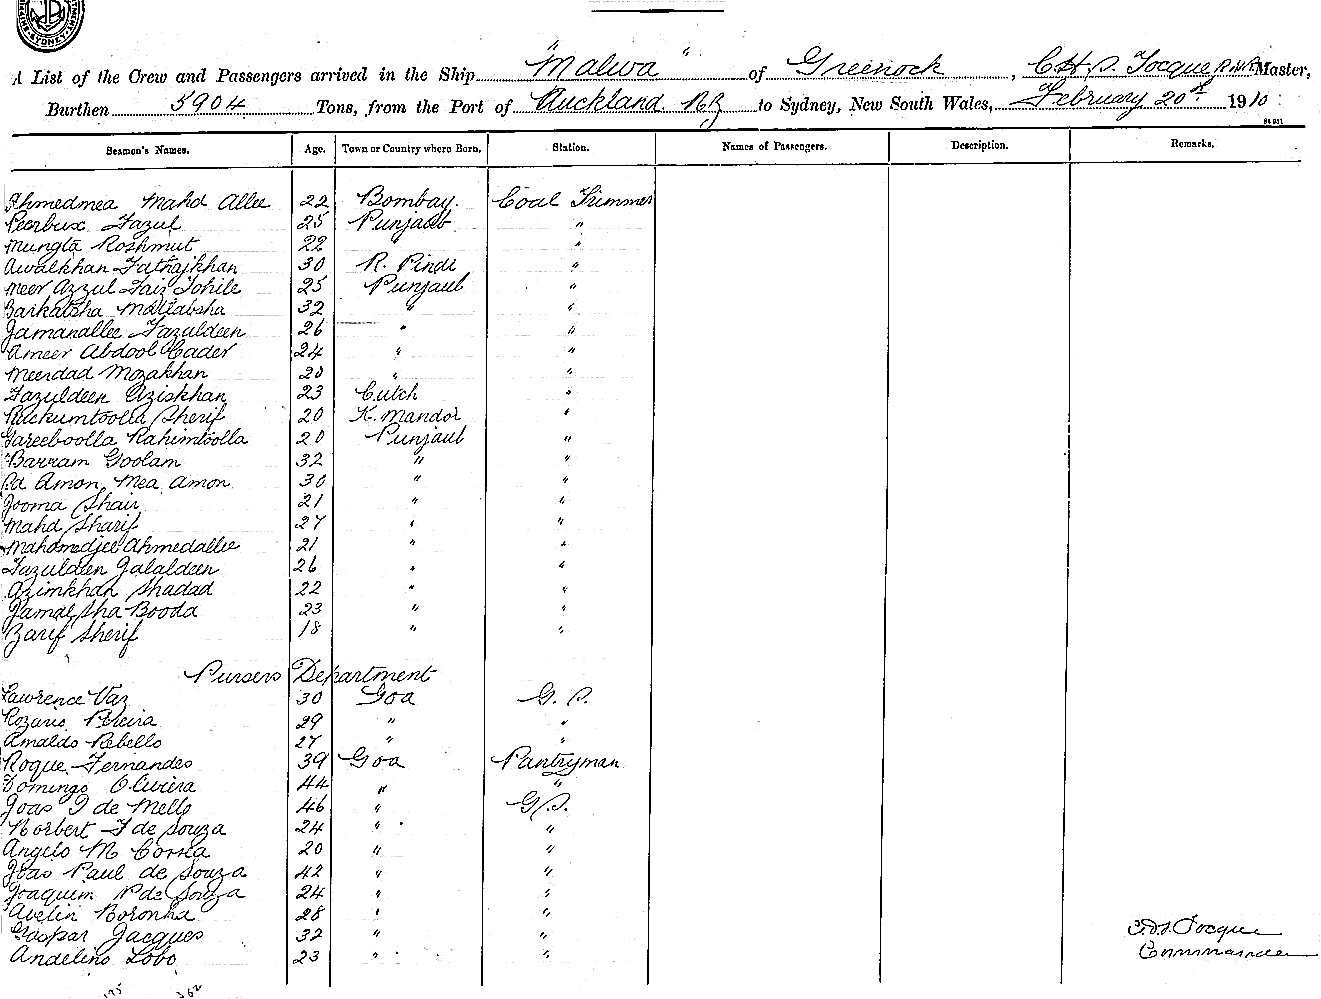 A List of the Crew and Passengers arrived in the Ship "Malwa" of Greenock, C.H.S. Tocque R.N.R. Master,
Burthen 5904 Tons, from the Port of Auckland NZ to Sydney, New South Wales, February 20th 1910
Seamen's Names. Age. Town or Country where Born. Station. Names of Passengers. Description. Remarks.
Ahmedmea Mahd Allee 22 Bombay. Coal Trimmer
Peerbux Fazul 25 Punjaub "
Mungta Roshmut 22 " "
Awalkhan Fathajkhan 30 R. Pindi "
Meer Azzul Faiz 25 Punjaub "
Barkatsha Mattabsha 32 " "
Jamanallee Fazuldeen 26 " "
Ameer Abdool Cader 24 " "
Meerdad Mozakhan 20 " "
Fazuldeen Aziskhan 23 Cutch "
Ruckumtoolla Sherif 20 K. Mandor "
Gareeboolla Rahimtoolla 20 Punjaub "
Barram Goolam 32 " "
Amon Mea Amon 30 " "
Jooma Shair 21 " "
Mahd Sharif 27 " "
Mahomedjee Ahmedallee 21 " "
Fazuldeen Galaldeen 26 " "
Azimkhan Shadad 22 " "
Jamal Sha Booda 23 " "
Zarif Sherif 18 " "
Pursers Department
Lawrence Vaz 30 Goa G. S.
Rozario Pereira 29 " "
Arnaldo Rebello 27 " "
Roque Fernandes 39 Goa Pantryman
Domingo Oliviera 44 " "
Joao I de Mello 46 " G.S.
Norbert F de Souza 24 " "
Angelo M Correa 20 " "
Joao Paul de Souza 42 " "
Joaquim P de Souza 24 " "
Avelin Noronha 28 " "
Gaspar Jacques 32 " "
Andelino Lobo 23 " "
Tocque
Commander